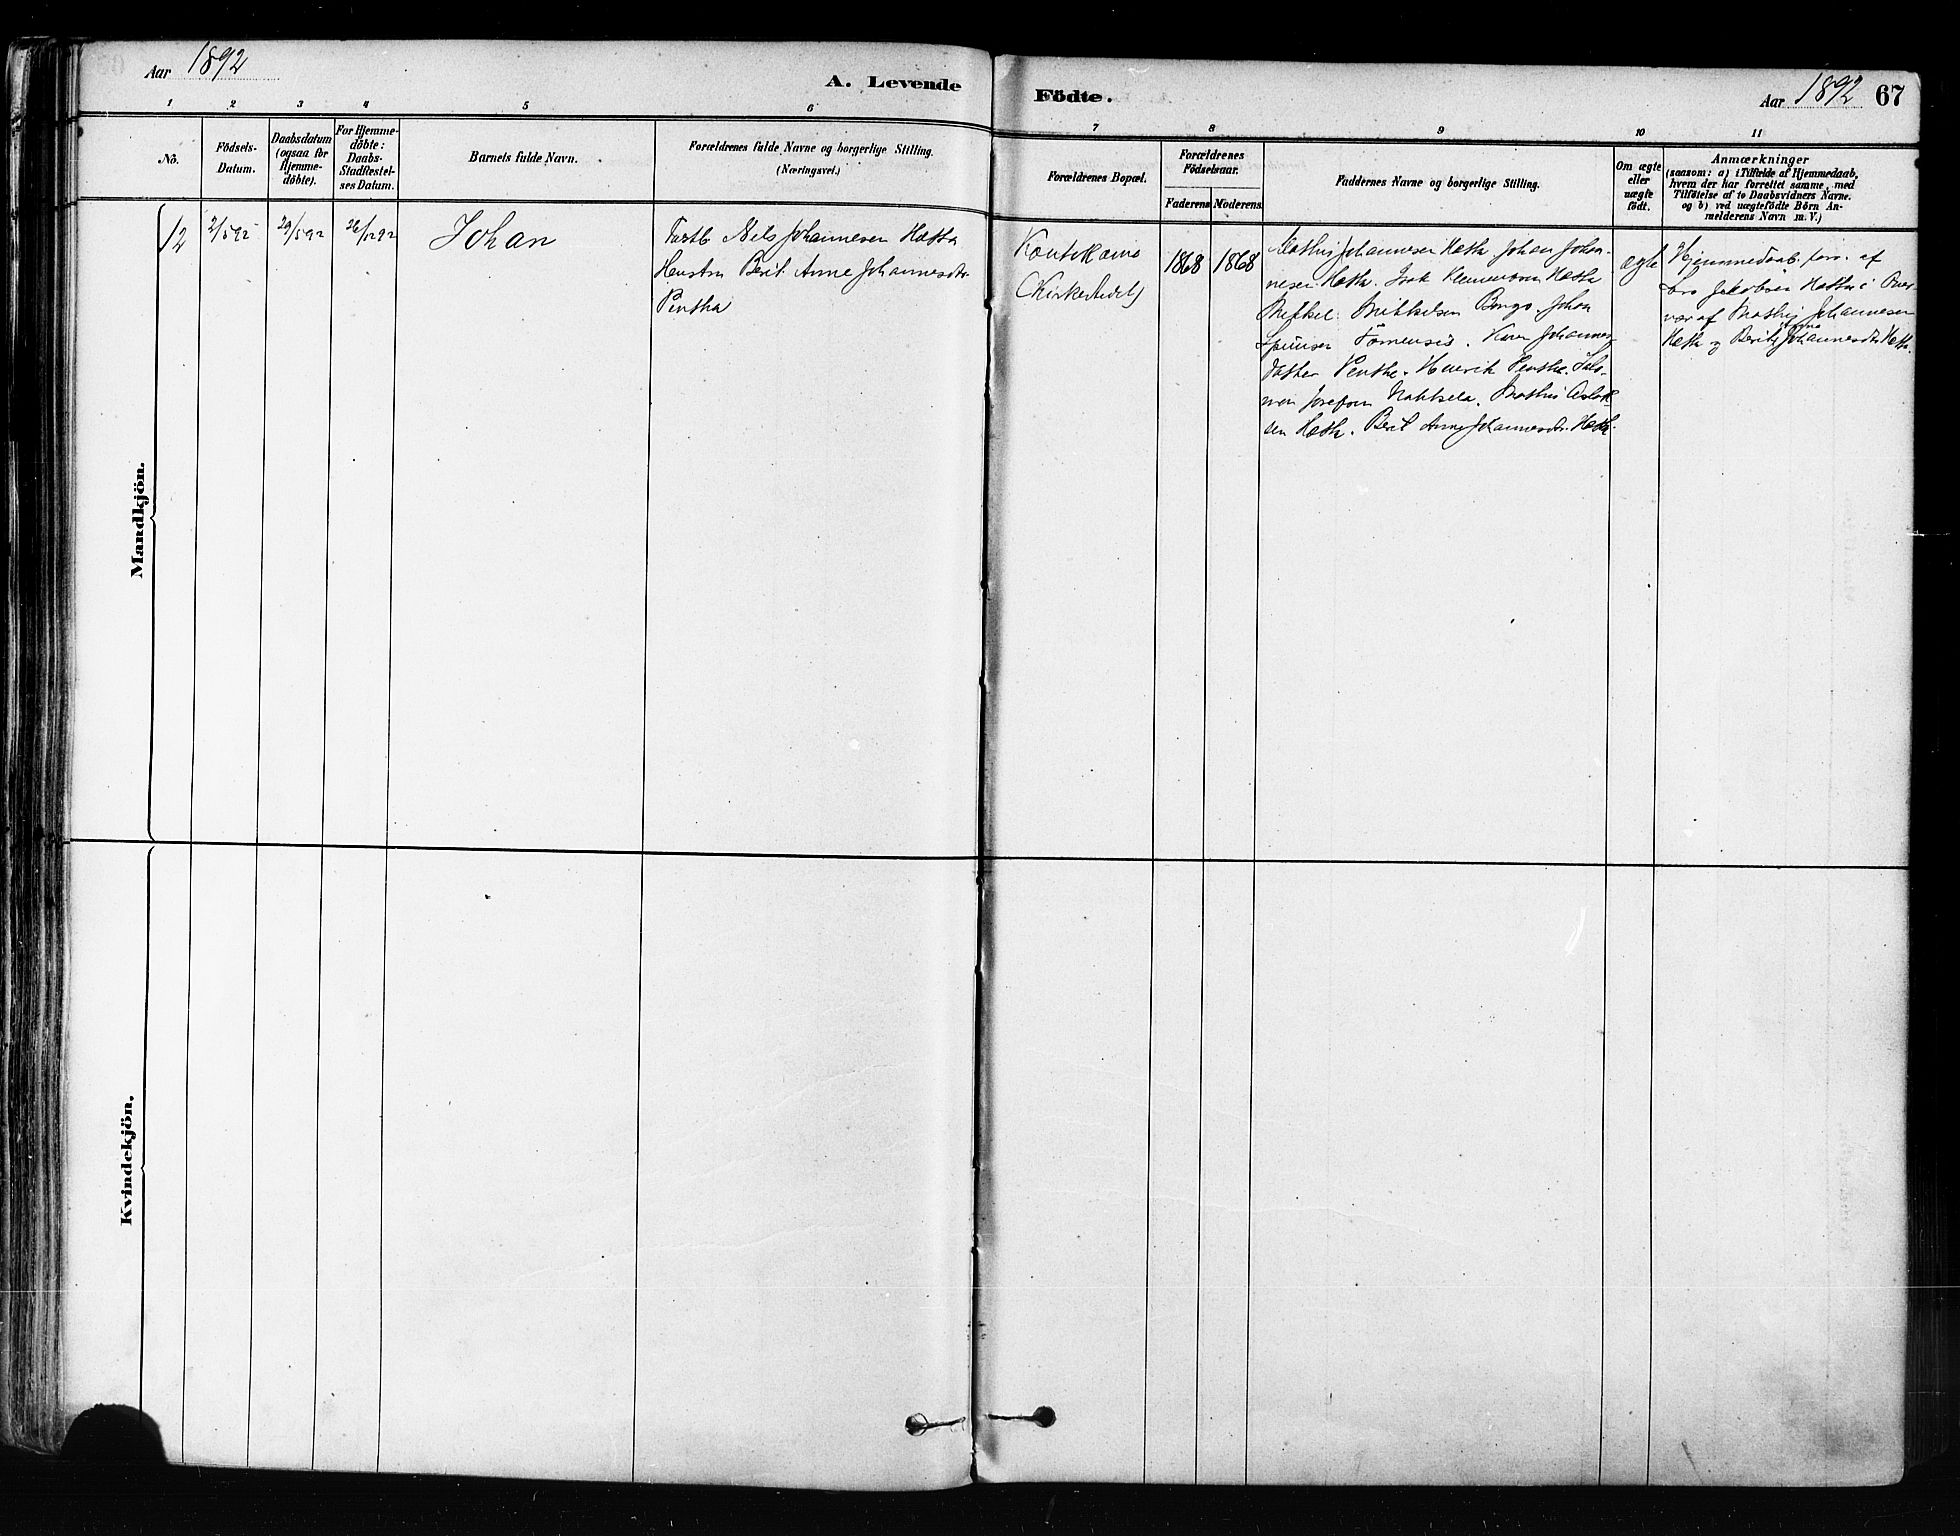 Aar 1892
A. Levende
Födte.
Aar 1892 67
1 2 3 4 5 6 7 8 9 10 11
No.
Födsels-
Datum.
Daabsdatum
(ogsaa for
Hjemme-
döbte).
For Hjemme-
döbte:
Daabs-
Stadfæstel-
ses Datum.
Barnets fulde Navn.
Forældrenes fulde Navne og borgerlige Stilling.
(Næringsvei.)
Forældrenes Bopæl.
Forældrenes
Födselsaar.
Faderens Moderens
Faddernes Navne og borgerlige Stilling.
Om ægte
eller
uægte
födt.
Anmærkninger
(saasom: a) i Tilfælde af Hjemmedaab,
hvem der har forrettet samme, med
Tilföielse af to Daabsvidners Navne.
og b) ved uægtefödte Börn An-
melderens Navn m. V.)
Mandkjön.
12
2/5 92
29/5 92
26/12 92
Johan
Nels Johannesen Hætta
Hustru Berit Anne Johannesdtr.
Pentha
Koutokæino
(Kirkestedet)
1868
1868
Mathis Johannesen Hætta. Johan Johan-
nesen Hætta. Isak Klemetsen Hætta
Mikkel Mikkelsen Bongo. Johan
Johannes
datter Pentha. Henrik Pentha. Salo-
mon Josefsen Nakkela. Mathis Aslak
sen Hætta. Berit Anne Johannesdtr. Hætta.
ægte
Hjemmedaab forr. af
Lars Jakobsen Hætta i Over-
vær af Mathis Johannesen
Hætta og Berit Anne Johannesdtr Hætta.
Kvindekjön.